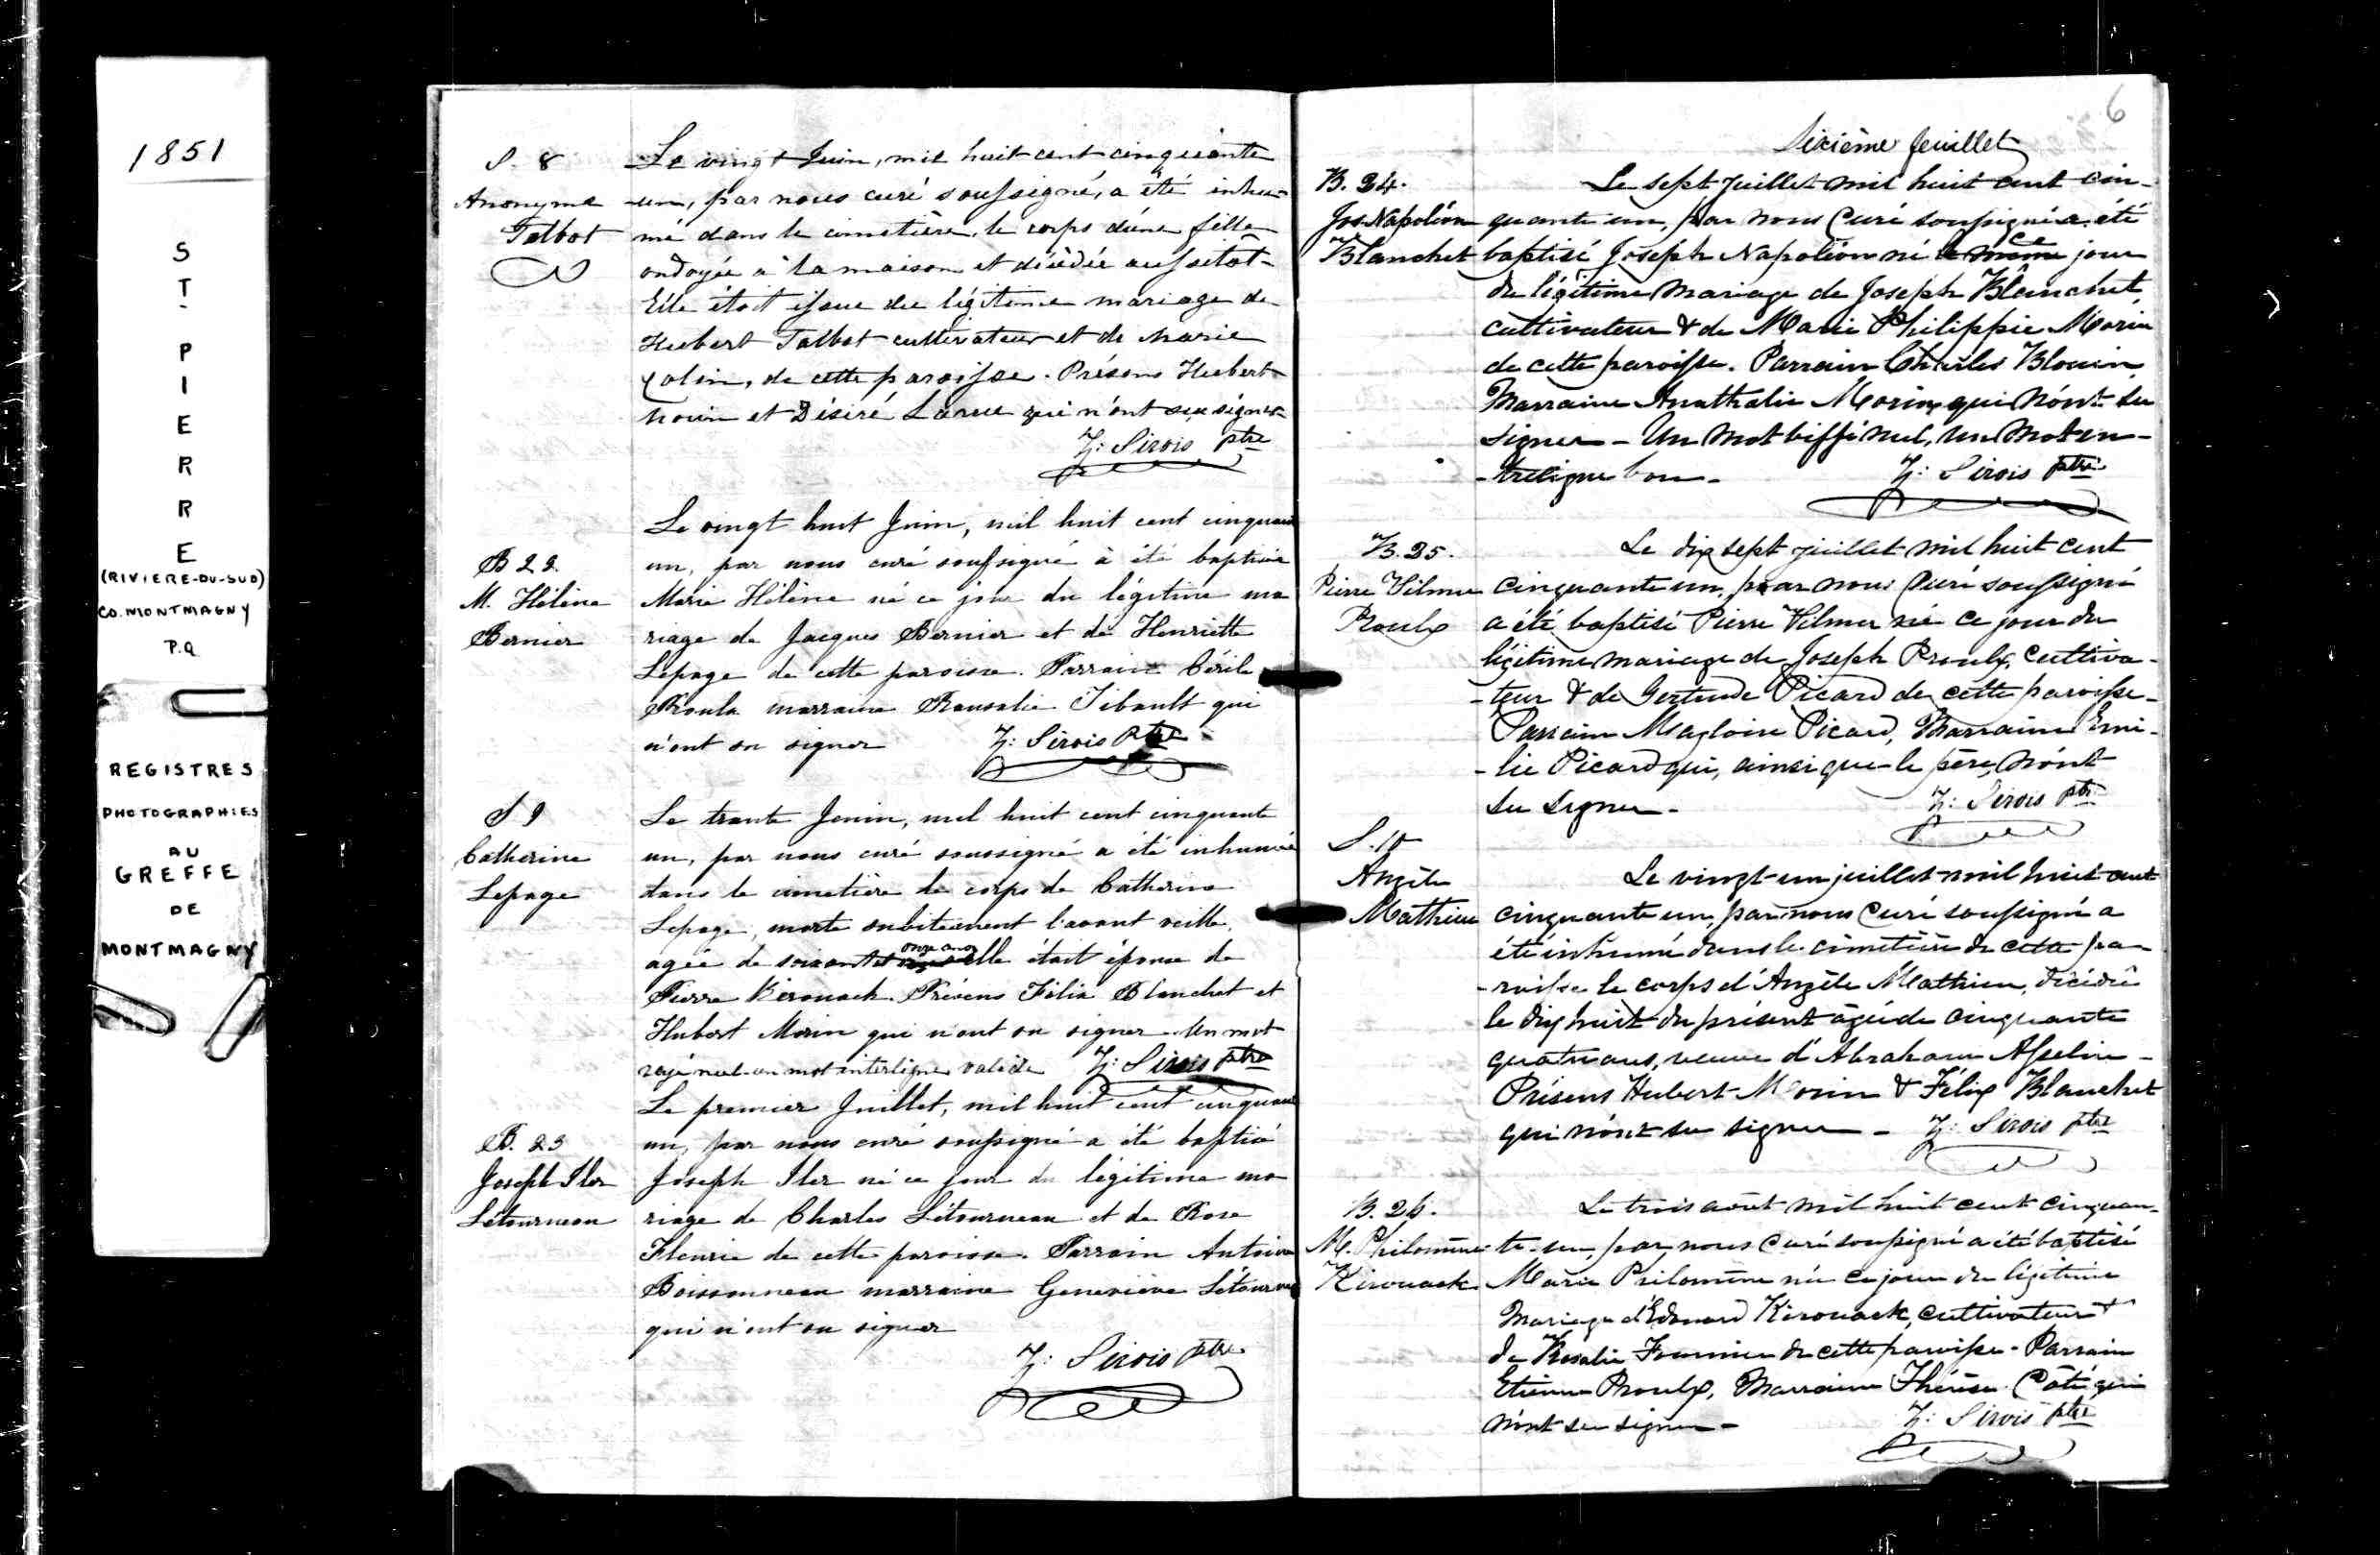 1851
ST-PIERRE
(RIVIERE-DU-SUD)
CO. MONTMAGNY
P.Q
REGISTRES
PHOTOGRAPHIES
AU
GREFFE
DE
MONTMAGNY
S. 8
Anonyme
Talbot
Le vingt Juin, mil huit cent cinquante
un, par nous curé soussigné, a été inhu-
mé dans le cimetière, le corps d'une fille
ondoyée à la maison et décédée aussitôt-
Elle étoit issue du légitime mariage de
Hubert Talbot cultivateur et de Marie
Colin, de cette paroisse. Présens Hubert
Morin et Désiré Larue qui n'ont su signer
Z: Sirois ptre
B 22.
M. Hélène
Bernier
Le vingt huit Juin, mil huit cent cinquan
un, par nous curé soussigné à été baptisée
Marie Hélène né ce jour du légitime ma
riage de Jacques Bernier et de Henriette
Lepage de cette paroisse. Parrain Cérile
Proulx marraine Rausalie Tibault qui
n'ont su signer Z: Sirois ptre
S 9
Catherine
Lepage
Le trante Jenin, mil huit cent cinquante
un, par nous curé soussigné a été inhumée
dans le cimetière le corps de Catherine
Lepage, morte subitement l'avant veille,
agée de soixante et onze ans elle était épouse de
Pierre Kérouack. Présens Félix Blanchet et
Hubert Morin qui n'ont su signer. Un mot
rayé nul un mot interligne valide Z: Sirois ptre
B. 23
Joseph Iler
Létourneau
Le premier Juillet, mil huit cent cinquan
un, par nous curé soussigné a été baptisé
Joseph Iler né ce jour du légitime ma
riage de Charles Létourneau et de Rose
Fleurie de cette paroisse. Parrain Antoine
Boissonneau marraine Geneviève Létourneau
qui n'ont su signer
Z: Sirois ptre
6
Sixième feuillet
B. 24.
Jos. Napoléon
Blanchet
Le sept juillet mil huit cent cin-
quante un, par nous Curé soussigné a été
baptisé Joseph Napoléon né le même ce jour
du légitime mariage de Joseph Blanchet,
cultivateur & de Marie Philippie Morin
de cette paroisse. Parrain Charles Blouin,
Marraine Anathalie Morin qui n'ont su
signer - Un mot biffé nul, un mot en-
-treligne bon - Z: Sirois ptre
B. 25.
Pierre Vilmer
Proulx
Le dix sept juillet mil huit cent
cinquante un, par nous Curé soussigné
a été baptisé Pierre Vilmer né ce jour du
légitime mariage de Joseph Proulx, cultiva-
-teur & de Gertrude Picard de cette paroisse -
Parrain Magloire Picard, Marraine Emi-
-lie Picard qui, ainsi que le père, n'ont
su signer - Z: Sirois ptre
S. 10
Angèle
Mathieu
Le vingt-un juillet mil huit cent
cinquante un, par nous Curé soussigné a
été inhumé dans le cimetière de cette pa-
-roisse le corps d'Angèle Mathieu, décédée
le dix huit du présent agée de cinquante
quatre ans, veuve d'Abraham Asselin -
Présens Hubert Morin & Félix Blanchet
qui n'ont su signer - Z: Sirois ptre
B. 26.
M. Philomène
Kirouack
Le trois août mil huit cent cinquan-
te-un, par nous Curé soussigné a été baptisé
Marie Philomène née ce jour du légitime
Mariage d'Edouard Kirouack, cultivateur &
de Rosalie Fournier de cette paroisse - Parrain
Etienne Proulx, Marraine Thérèse Côté qui
n'ont su signer - Z: Sirois ptre